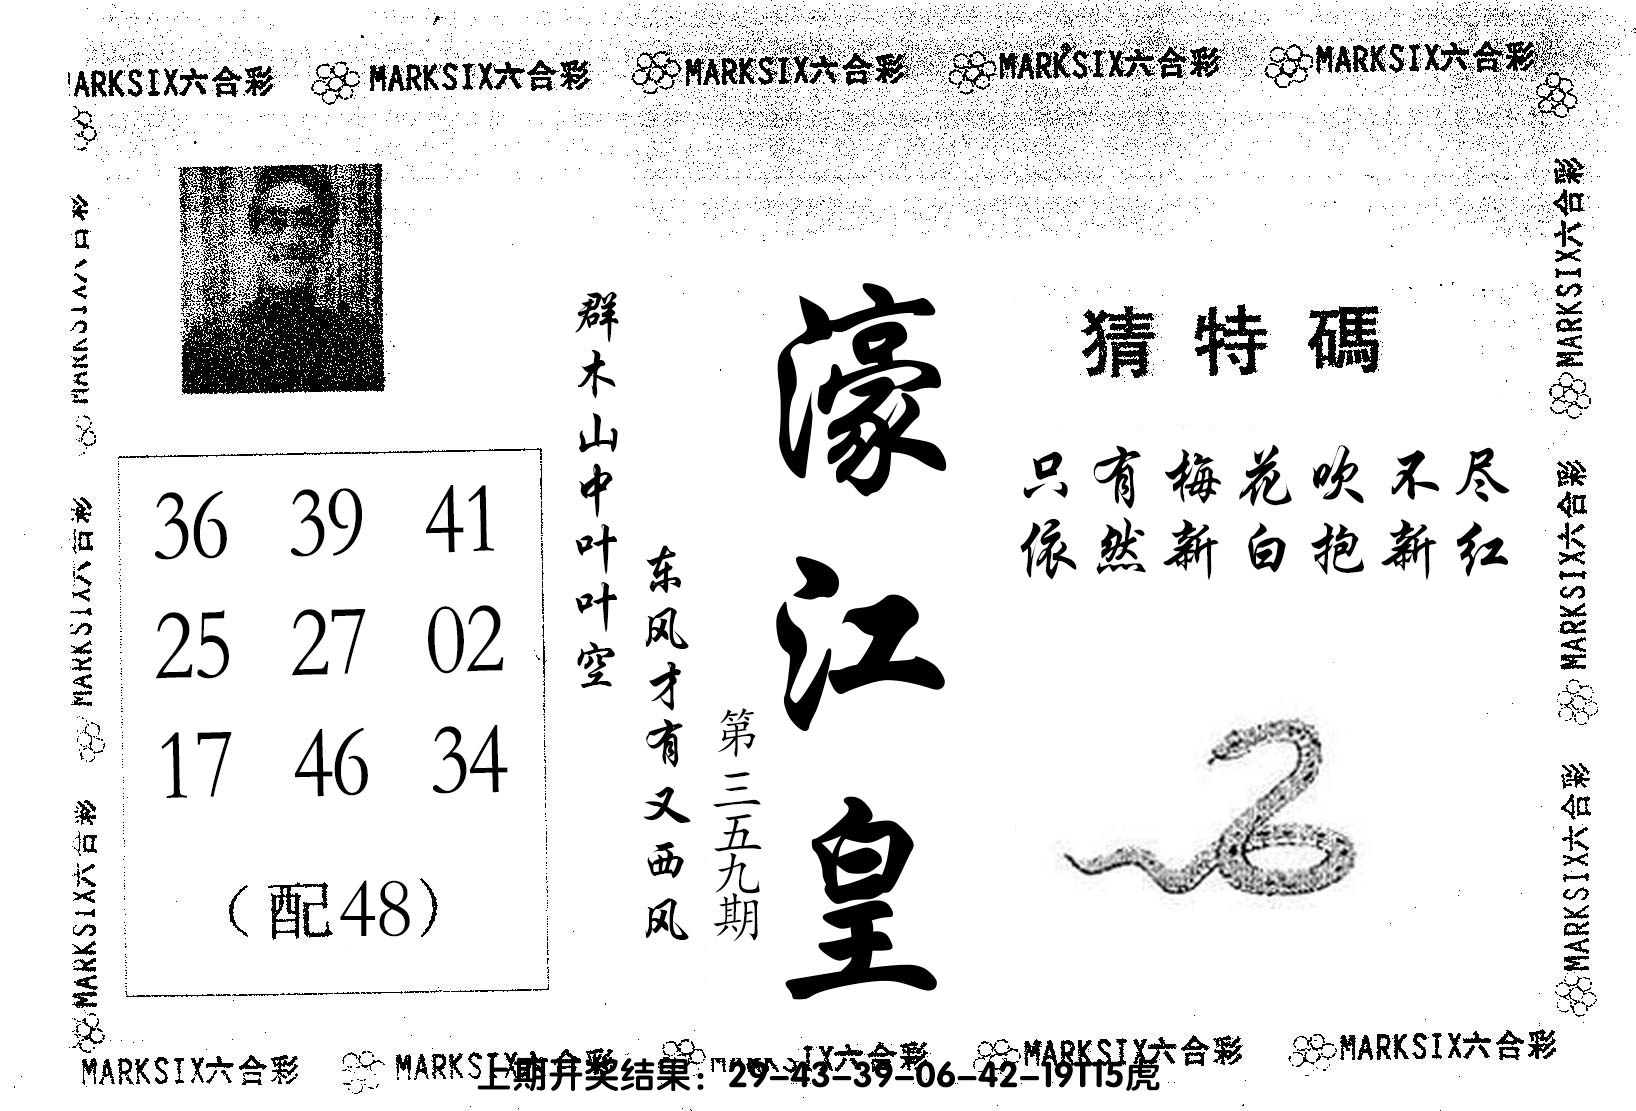 MARKSIX六合彩 MARKSIX六合彩 MARKSIX六合彩 MARKSIX六合彩 MARKSIX六合彩
MARKSIX六合彩
MARKSIX六合彩
MARKSIX六合彩
36 39 41
25 27 02
17 46 34
(配48)
群木山中叶叶空
东风才有又西风
第三五九期
濠江皇
猜特碼
只有梅花吹不尽
依然新白抱新红
MARKSIX六合彩
MARKSIX六合彩
MARKSIX六合彩
MARKSIX六合彩 MARKSIX六合彩 MARKSIX六合彩 MARKSIX六合彩 MARKSIX六合彩
上期开奖结果：29-43-39-06-42-19T15虎